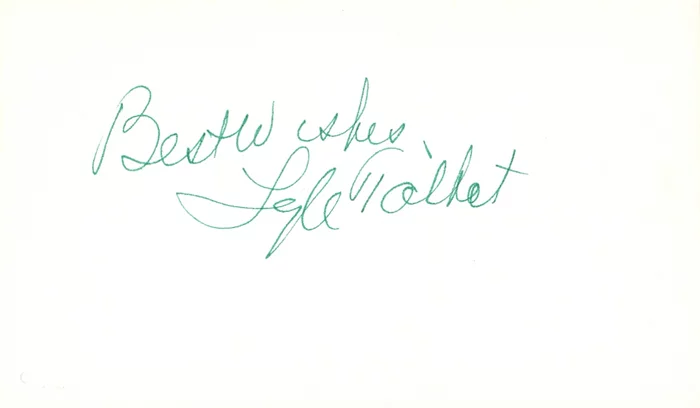 Best Wishes
Lyle Talbot